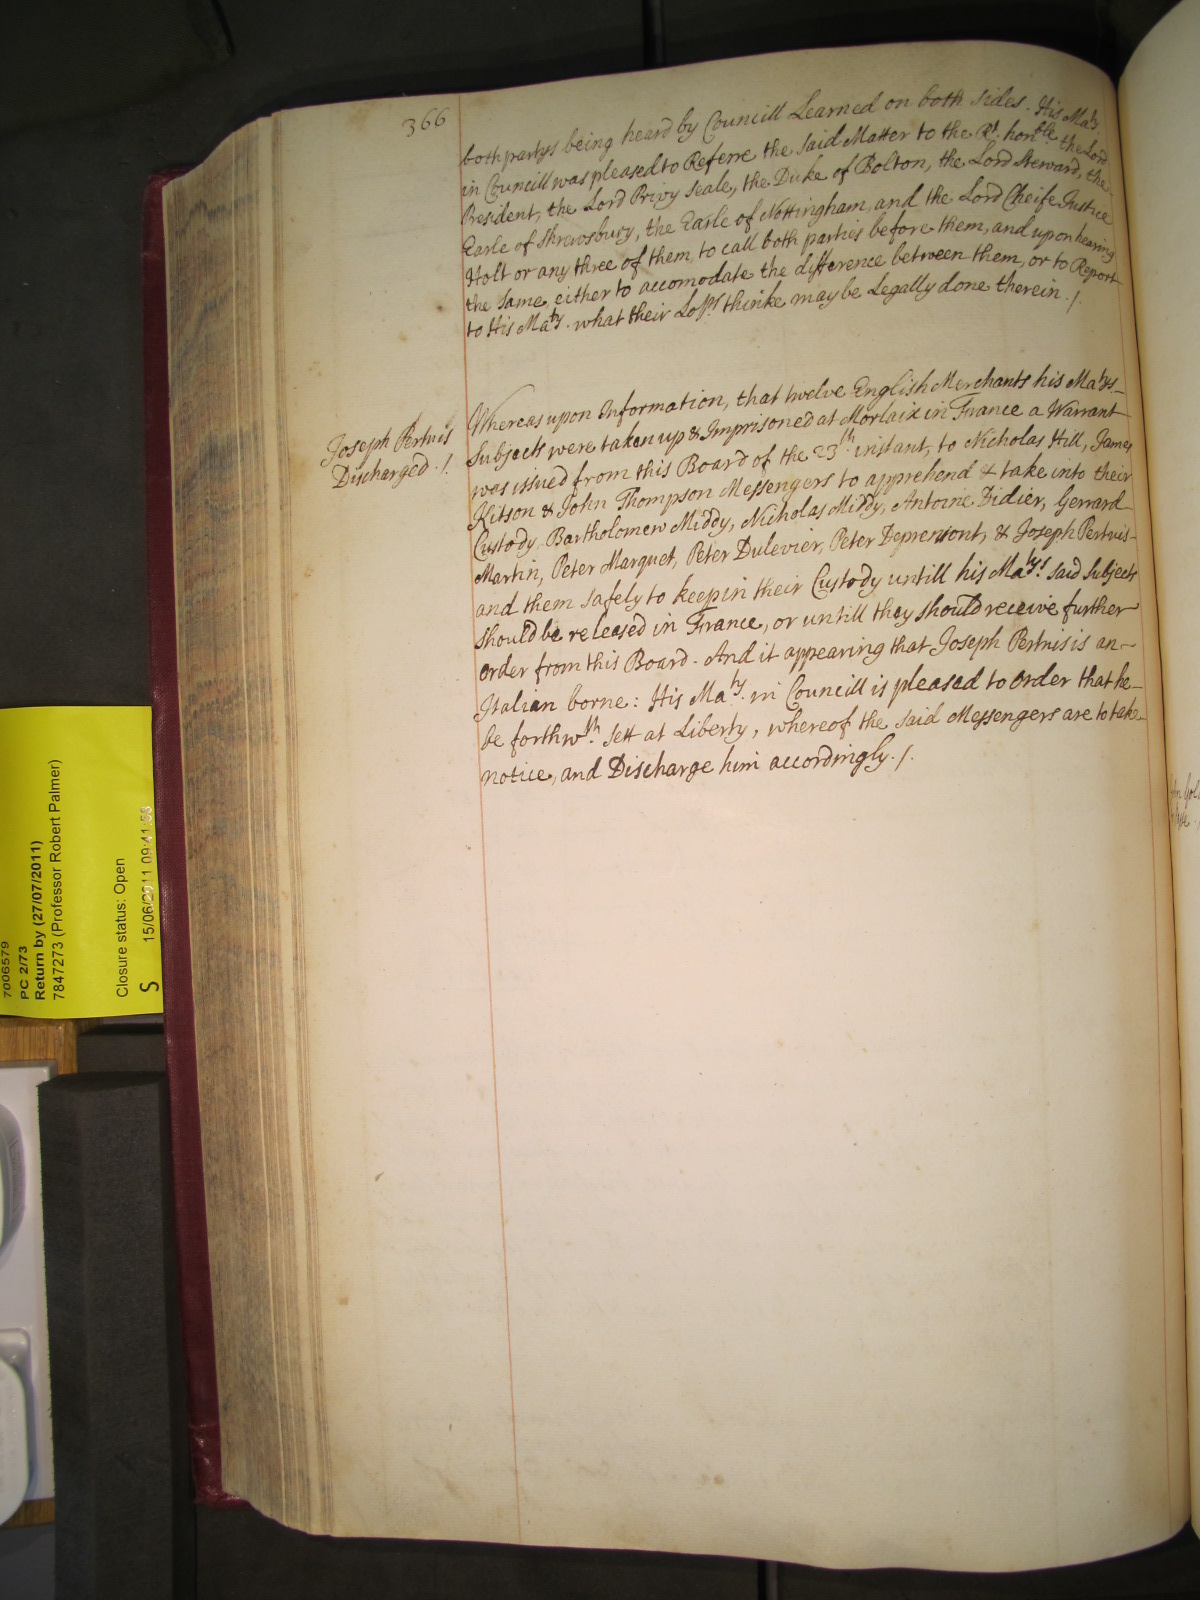 366
both partys being heard by Councill Learned on both sides. His Maty.
in Councill was pleased to Referre the said Matter to the Rt. honble. the Lord
President, the Lord Privy Seale, the Duke of Bolton, the Lord Steward, the
Earle of Shrewsbury, the Earle of Nottingham, and the Lord Cheife Justice
Holt or any three of them, to call both parties before them, and upon hearing
the same, either to accomodate the difference between them, or to Report
to His Maty. what their Lopps. thinke may be Legally done therein ./.
Joseph Pertuis
Discharged ./.
Whereas upon Information, that twelve English Merchants his Matys
Subjects were taken up & Imprisoned at Morlaix in France a Warrant
was issued from this Board of the 23th. instant, to Nicholas Hill, James
Kitson & John Thompson Messengers to apprehend & take into their
Custody, Bartholomew Middy, Nicholas Middy, Antoine Didier, Gerrard
Martin, Peter Marquet, Peter Dulevier, Peter Depremont, & Joseph Pertuis
and them safely to keep in their Custody untill his Matys. said Subjects
should be released in France, or untill they should receive further
order from this Board. And it appearing that Joseph Pertuis is an
Italian borne: His Maty. in Councill is pleased to order that he
be forthwth. sett at Liberty, whereof the said Messengers are to take
notice, and Discharge him accordingly ./.
7006579
PC 2/73
Return by (27/07/2011)
7847273 (Professor Robert Palmer)
Closure status: Open
S 15/06/2011 09:41:53